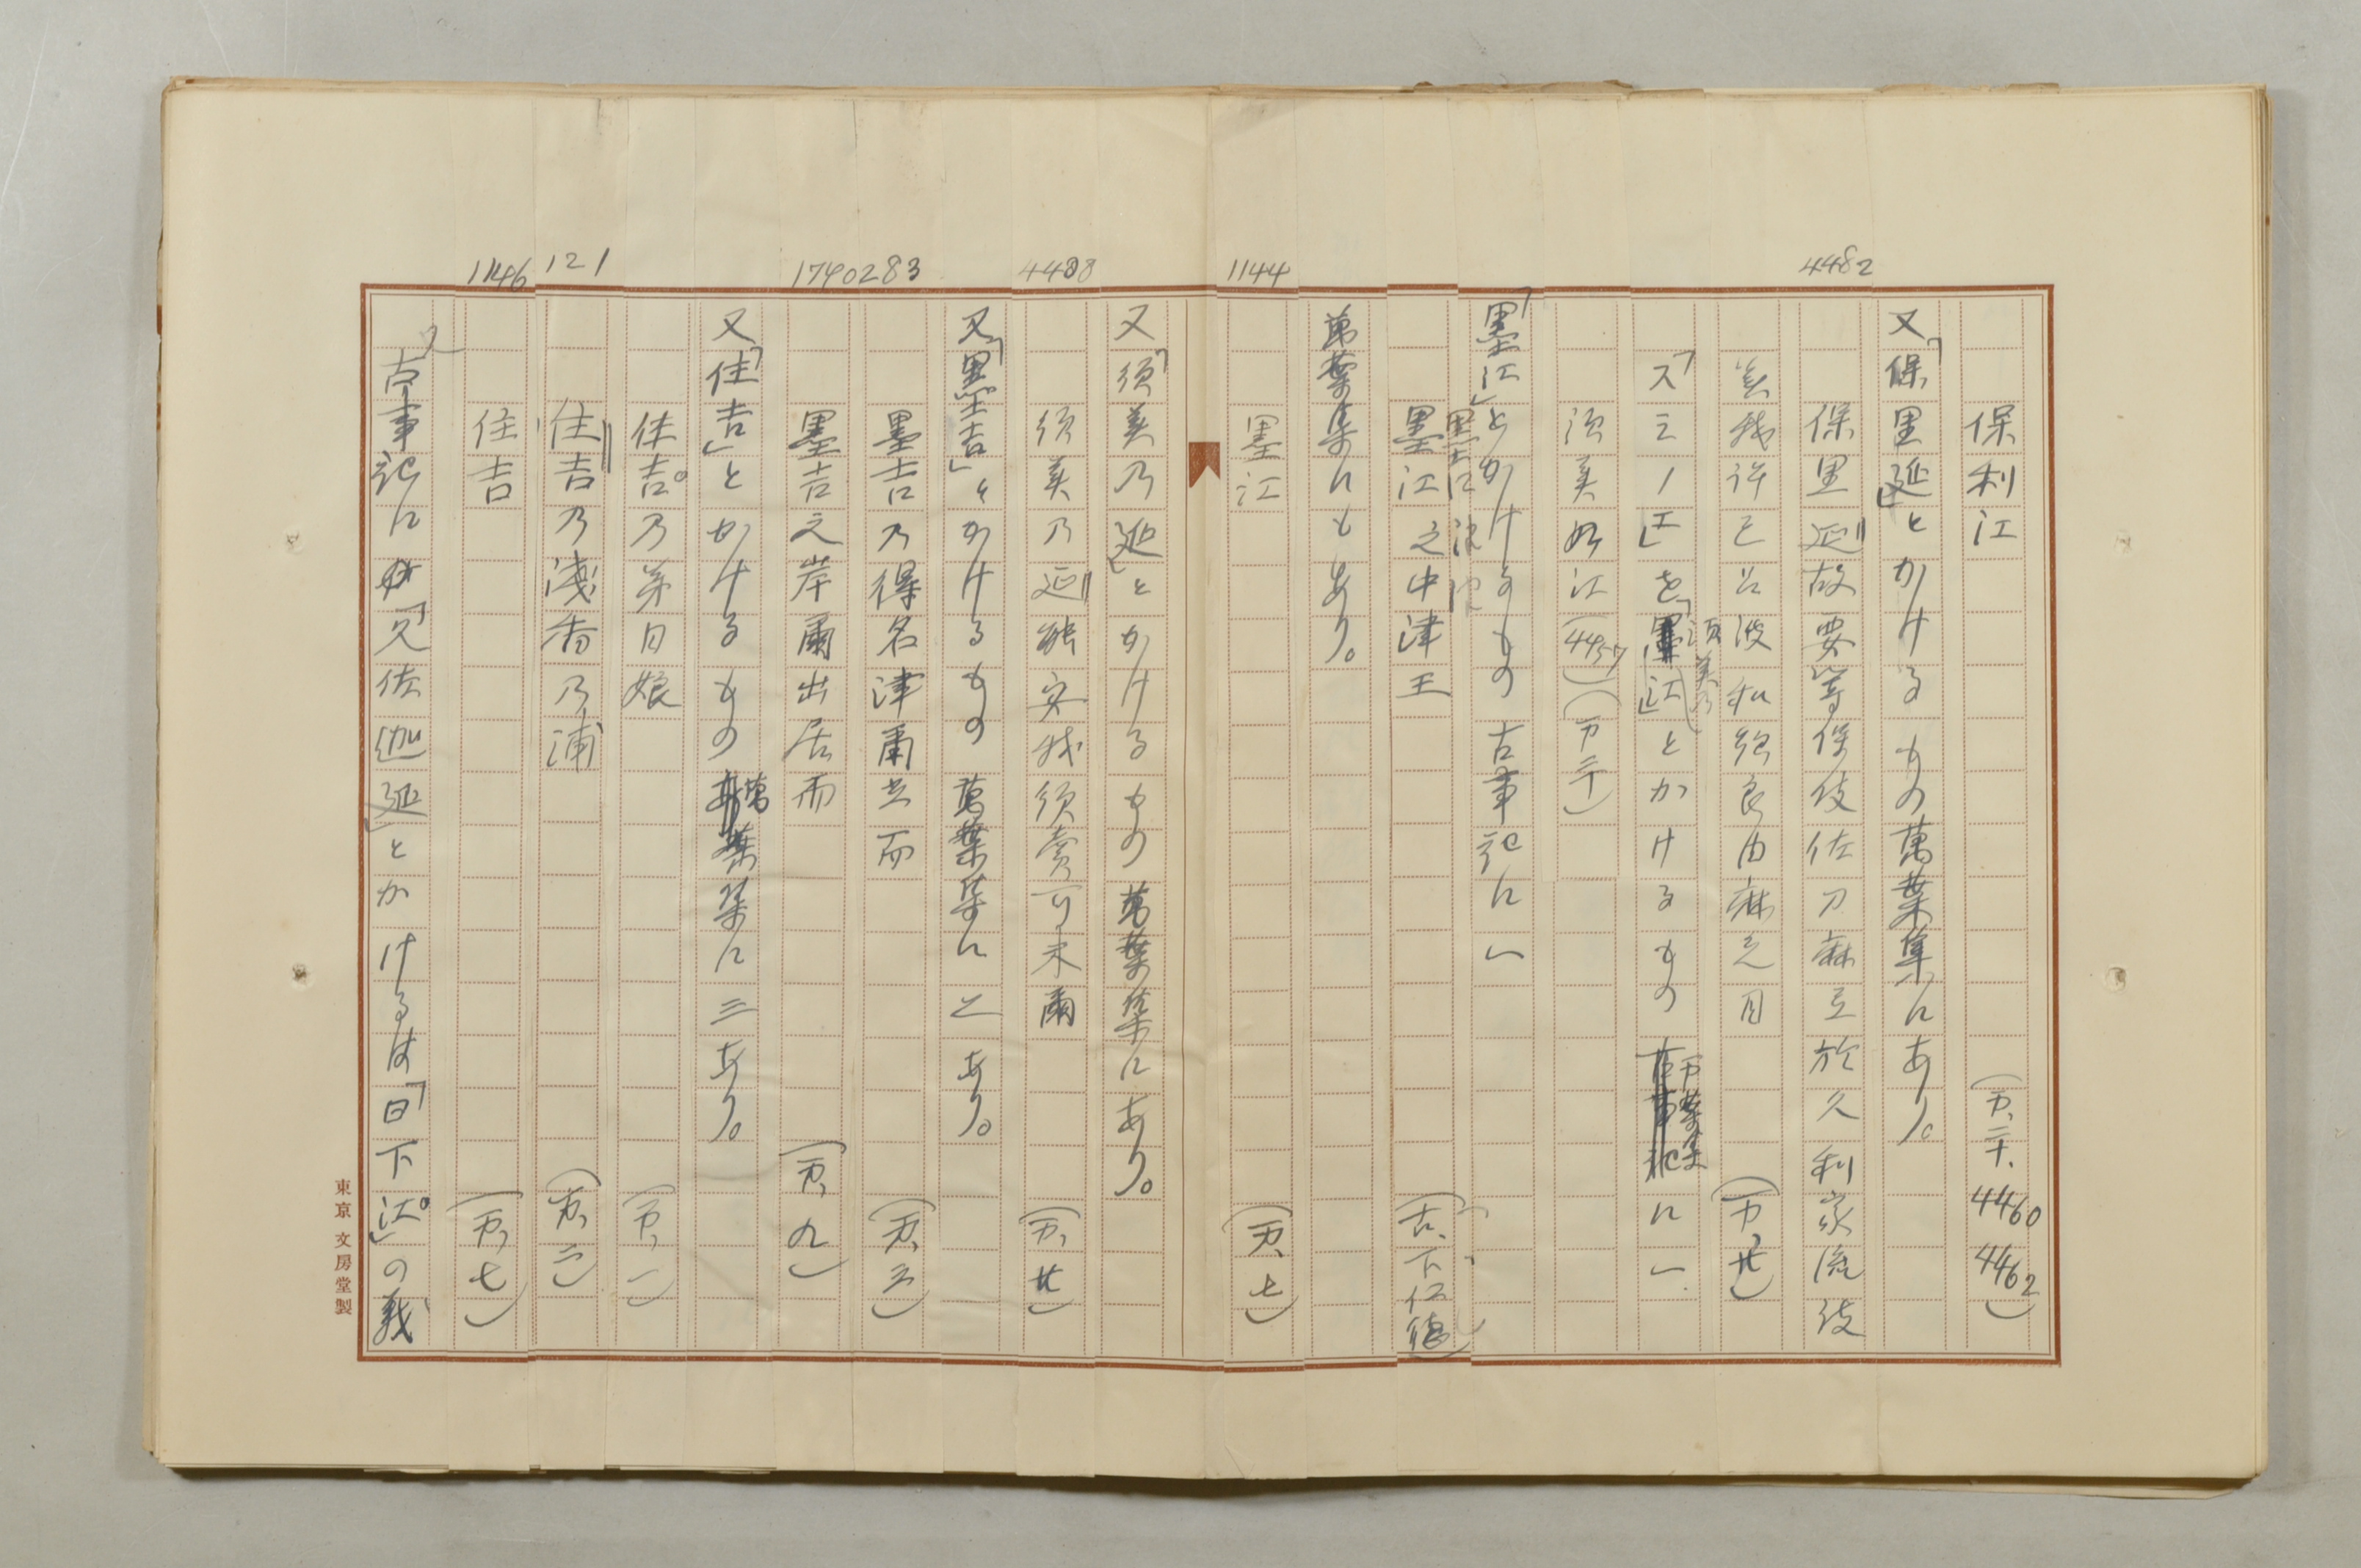 保利江 (万、二十、4460 4462)
又「保里延」とかけるもの萬葉集にあり。
4482
保里延故要等保伎佐刀麻弖於久利家流伎
美我許己呂波和須良由麻之目 (万、廿)
「スミノエ」を「須美乃江」とかけるもの万葉集に一
須美乃江(4457)(万二十)
「墨江」とかけるもの古事記に一
墨江之中津王 (古、下仁徳)
萬葉集にもあり。
1144
墨江 (万、七)
又「須美乃延」とかけるもの萬葉集にあり。
4488
須美乃延 (万、廿)
又「墨吉」とかけるもの萬葉集に二あり。
283
墨吉乃得名津爾立而 (万、三)
1740
墨吉之岸爾出居而 (万、九)
又「住吉」とかけるもの萬葉集に三あり。
住吉乃弟日娘 (万、一)
121
住吉乃淺香乃浦 (万、二)
1146
住吉 (万、七)
又古事記に「久佐迦延」とかけるは「日下江」の義
東京 文房堂製